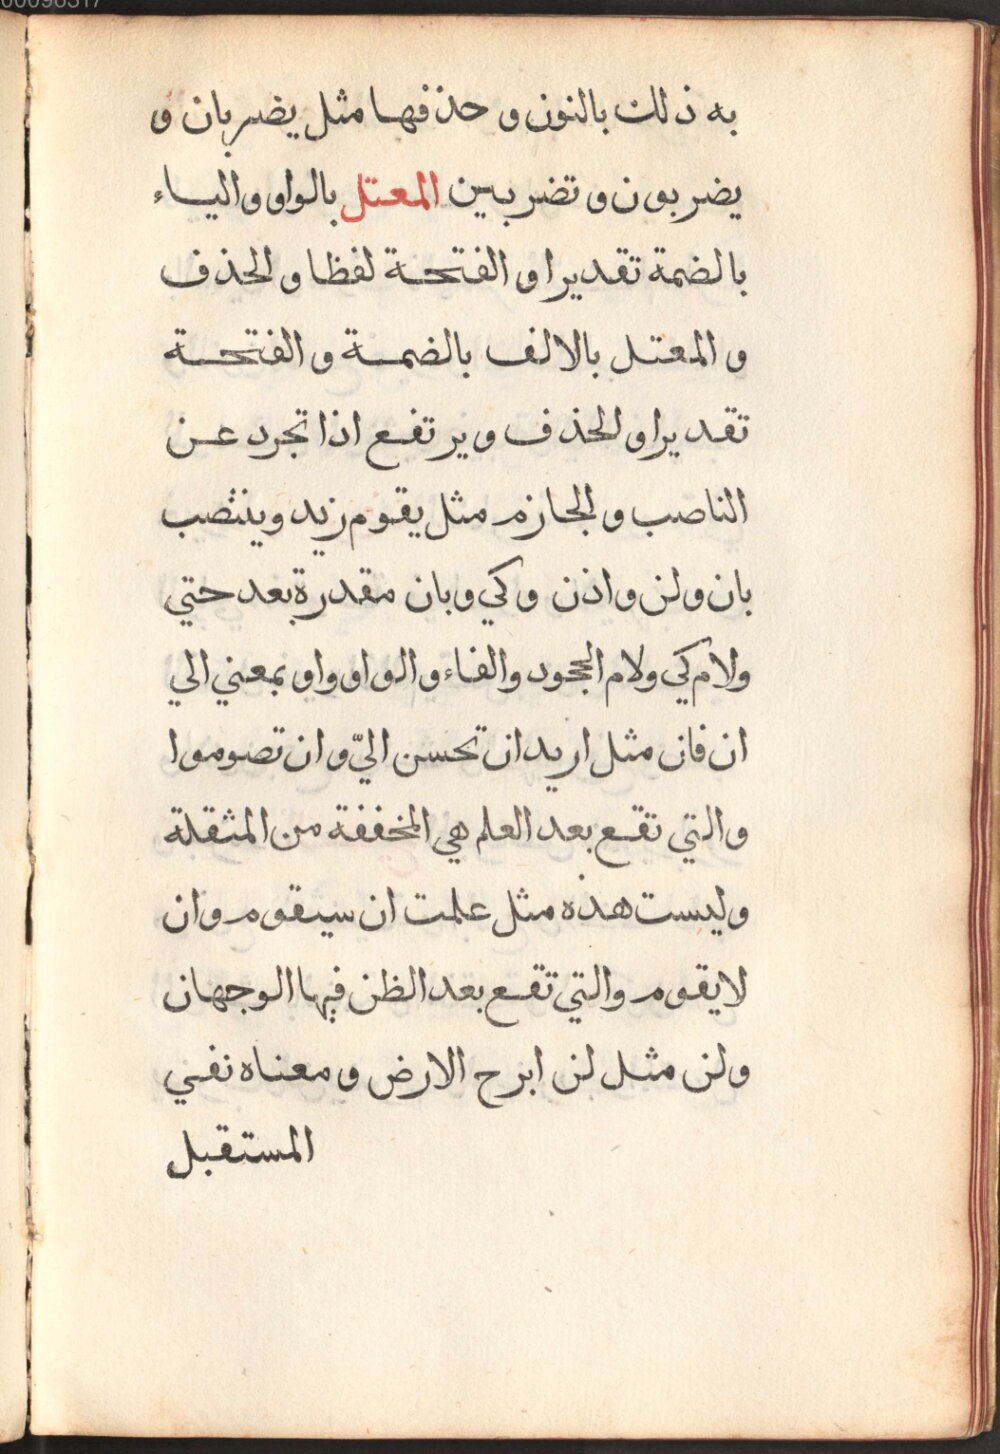 به ذلك بالنون و حذفها مثل يضربان و
يضربون و تضربين المعتل بالواو والياء
بالضمة تقديرا و الفتحة لفظا و الحذف
و المعتل بالالف بالضمة و الفتحة
تقديرا و الحذف و يرتفع اذا تجرد عن
الناصب و الجازم مثل يقوم زيد وينتصب
بان ولن واذن وكي وبان مقدرة بعد حتي
ولام كي ولام الجحود والفاء والواو واو بمعني الي
ان فان مثل اريد ان تحسن اليّ وان تصوموا
والتي تقع بعد العلم هي المخففة من المثقلة
وليست هذه مثل علمت ان سيقوم وان
لايقوم والتي تقع بعد الظن فيها الوجهان
ولن مثل لن ابرح الارض و معناه نفي
المستقبل